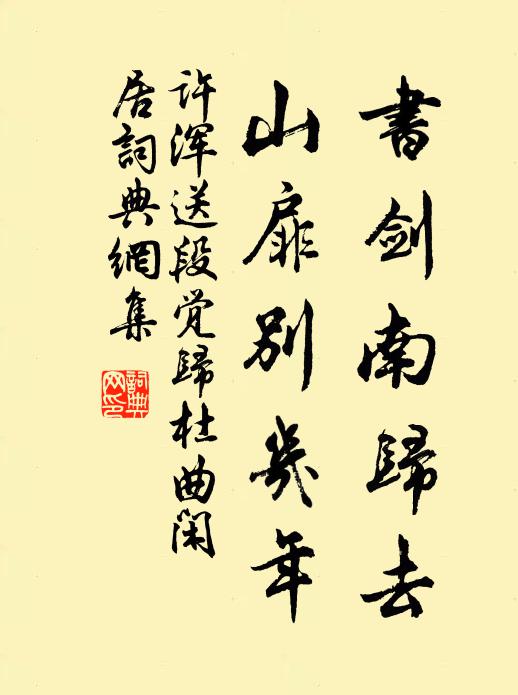 書劍南歸去
山扉別幾年
许渾送段覺歸杜曲閑
居詞典網集
詞典
网印